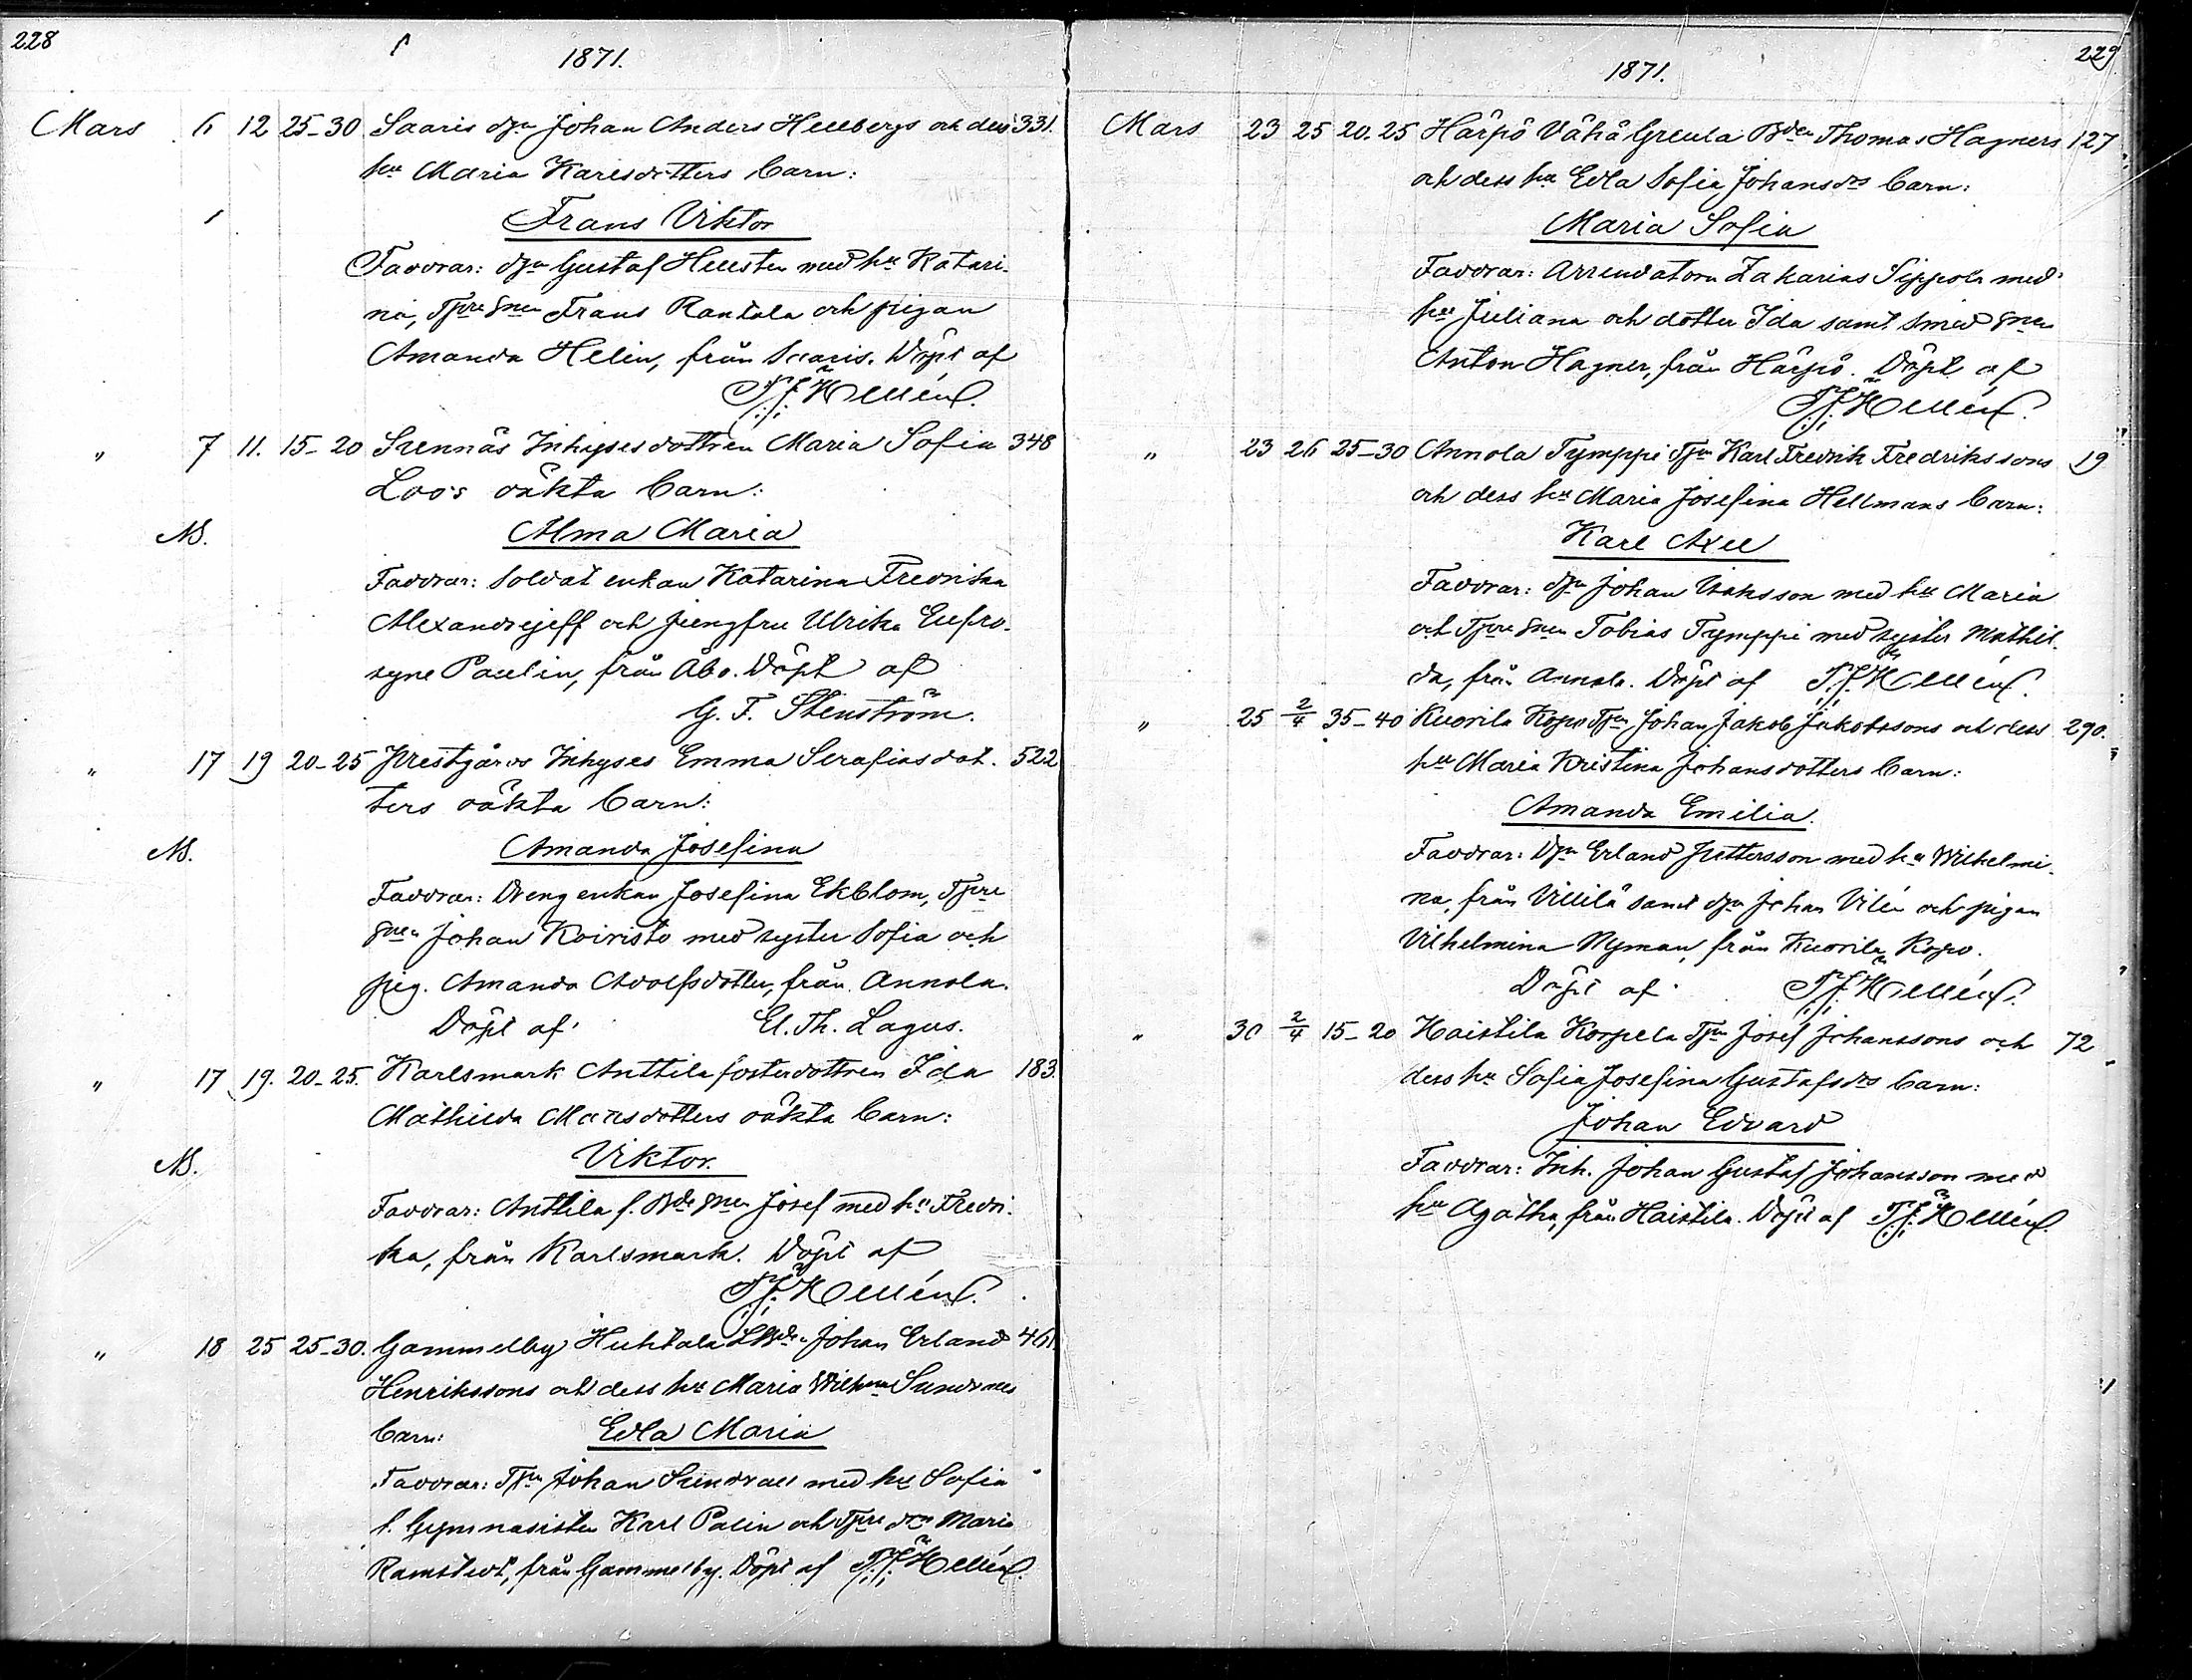 228
1871.
Mars 6 12 25-30 Saaris dgn Johan Anders Hellbergs och dess 331.
hu Maria Karlsdotters barn:
Frans Viktor
Faddrar: dgn Gustaf Hellsten med hu Katari-
na, Tpresnen Frans Rantala och pigan
Amanda Helin, från Saaris. Döpt af
Hellén.
" 7 11. 15-20 Sunnäs Inhysesdottren Maria Sofia 348
Loos oäkta barn:
NB. Alma Maria
Faddrar: Soldat enkan Katarina Fredrika
Alexandrejeff och jungfru Ulrika Eufro-
syne Paulin, från Åbo. Döpt af
G. F. Stenström.
" 17 19 20-25 Prestgårds Inhyses Emma Serafiasdot- 522
ters oäkta barn:
NB. Amanda Josefina
Faddrar: Drengenkan Josefina Ekblom, Tpre
snen Johan Koivisto med syster Sofia och
pig. Amanda Adolfsdotter, från Annola.
Döpt af El. Th. Lagus.
" 17 19. 20-25. Karlsmark Anttila fosterdottren Ida 183.
Mathilda Matsdotters oäkta barn:
NB. Viktor.
Faddrar: Anttila f. Bde snen Josef med hu Fredri-
ka, från Karlsmark. Döpt af
Hellén.
" 18 25 25-30. Gammelby Huhtala LBdn Johan Erland 461.
Henrikssons och dess hu Maria Wilhna Sundvalls
barn: Edla Maria
Faddrar: Tpn Johan Sundvall med hu Sofia
f. Gymnasisten Karl Palin och Tpre dn Maria
Ramstedt, från Gammelby. Döpt af Hellén.
229.
1871.
Mars 23 25 20.25 Härpö Vähä Greula Bden Thomas Hagners 127
och dess hu Edla Sofia Johansds barn:
Maria Sofia
Faddrar: Arrendatorn Zakarias Sippola med
hu Juliana och dotter Ida samt smed snen
Anton Hagner, från Härpö. Döpt af
Hellén.
" 23 26 25-30 Annola Tymppi Tpn Karl Fredrik Fredrikssons 19
och dess hu Maria Josefina Hellmans barn:
Karl Axel
Faddrar: dgn Johan Isaksson med hu Maria
och Tpre snen Tobias Tymppi med syster Mathil-
da, från Annola. Döpt af Hellén.
" 25 2/4 35-40 Kuorila Kopo Tpn Johan Jakob Jakobssons och dess 290.
hu Maria Kristina Johansdotters barn:
Amanda Emilia.
Faddrar: Dgn Erland Pettersson med hu Wilhelmi-
na, från Villilä samt dgn Johan Vilén och pigan
Vilhelmina Nyman, från Kuorila Kopo.
Döpt af Hellén.
" 30 2/4 15-20 Haistila Korpela Tpn Josef Johanssons och 72
dess hu Sofia Josefina Gustafsds barn:
Johan Edvard
Faddrar: Inh. Johan Gustaf Johansson med
hu Agatha, från Haistila. Döpt af Hellén.